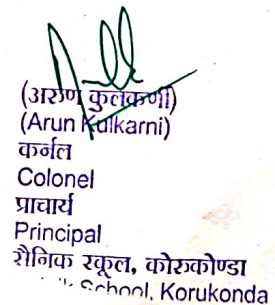 (अरुण कुलकर्णी)
(Arun Kulkarni)
कर्नल
Colonel
प्राचार्य
Principal
सैनिक स्कूल, कोरुकोण्डा
School, Korukonda